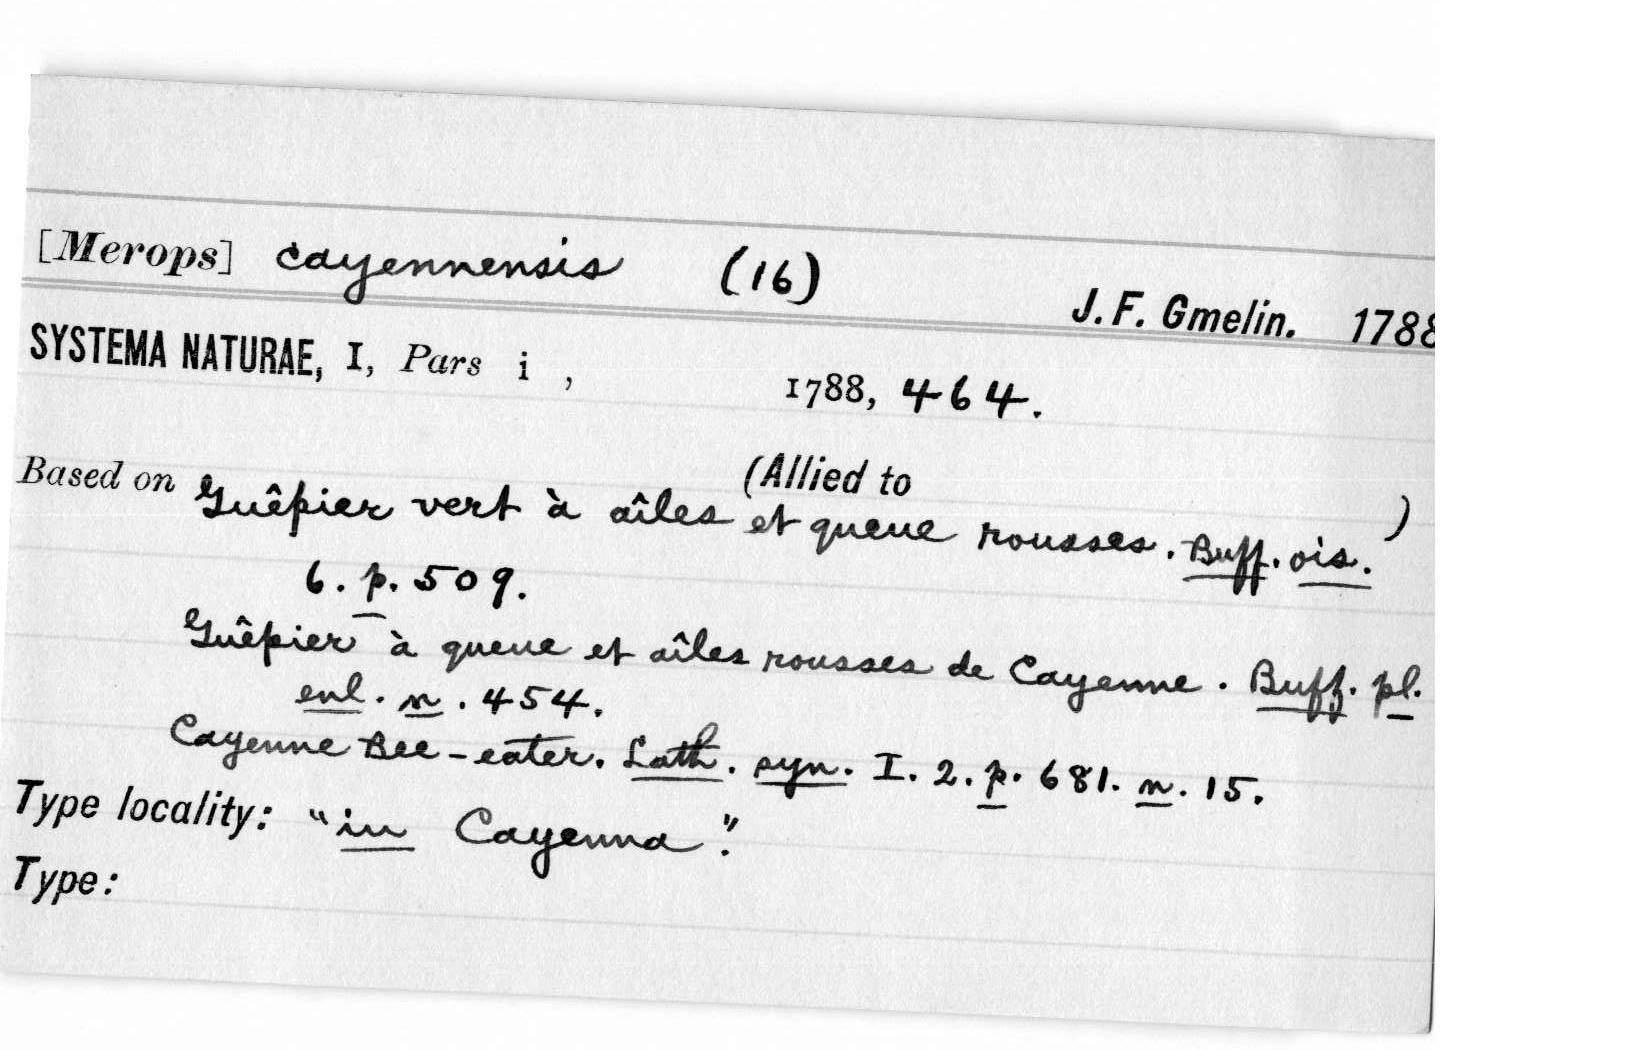 [Merops] cayennensis (16)
J. F. Gmelin. 1788
SYSTEMA NATURAE, I, Pars i ,
1788, 464.
(Allied to )
Based on Guêpier vert à aîles et queue rousses. Buff. ois.
6. p. 509.
Guêpier à queue et aîles rousses de Cayenne. Buff. pl.
enl. n. 454.
Cayenne Bee-eater. Lath. syn. I. 2. p. 681. n. 15.
Type locality: "in Cayenna".
Type: